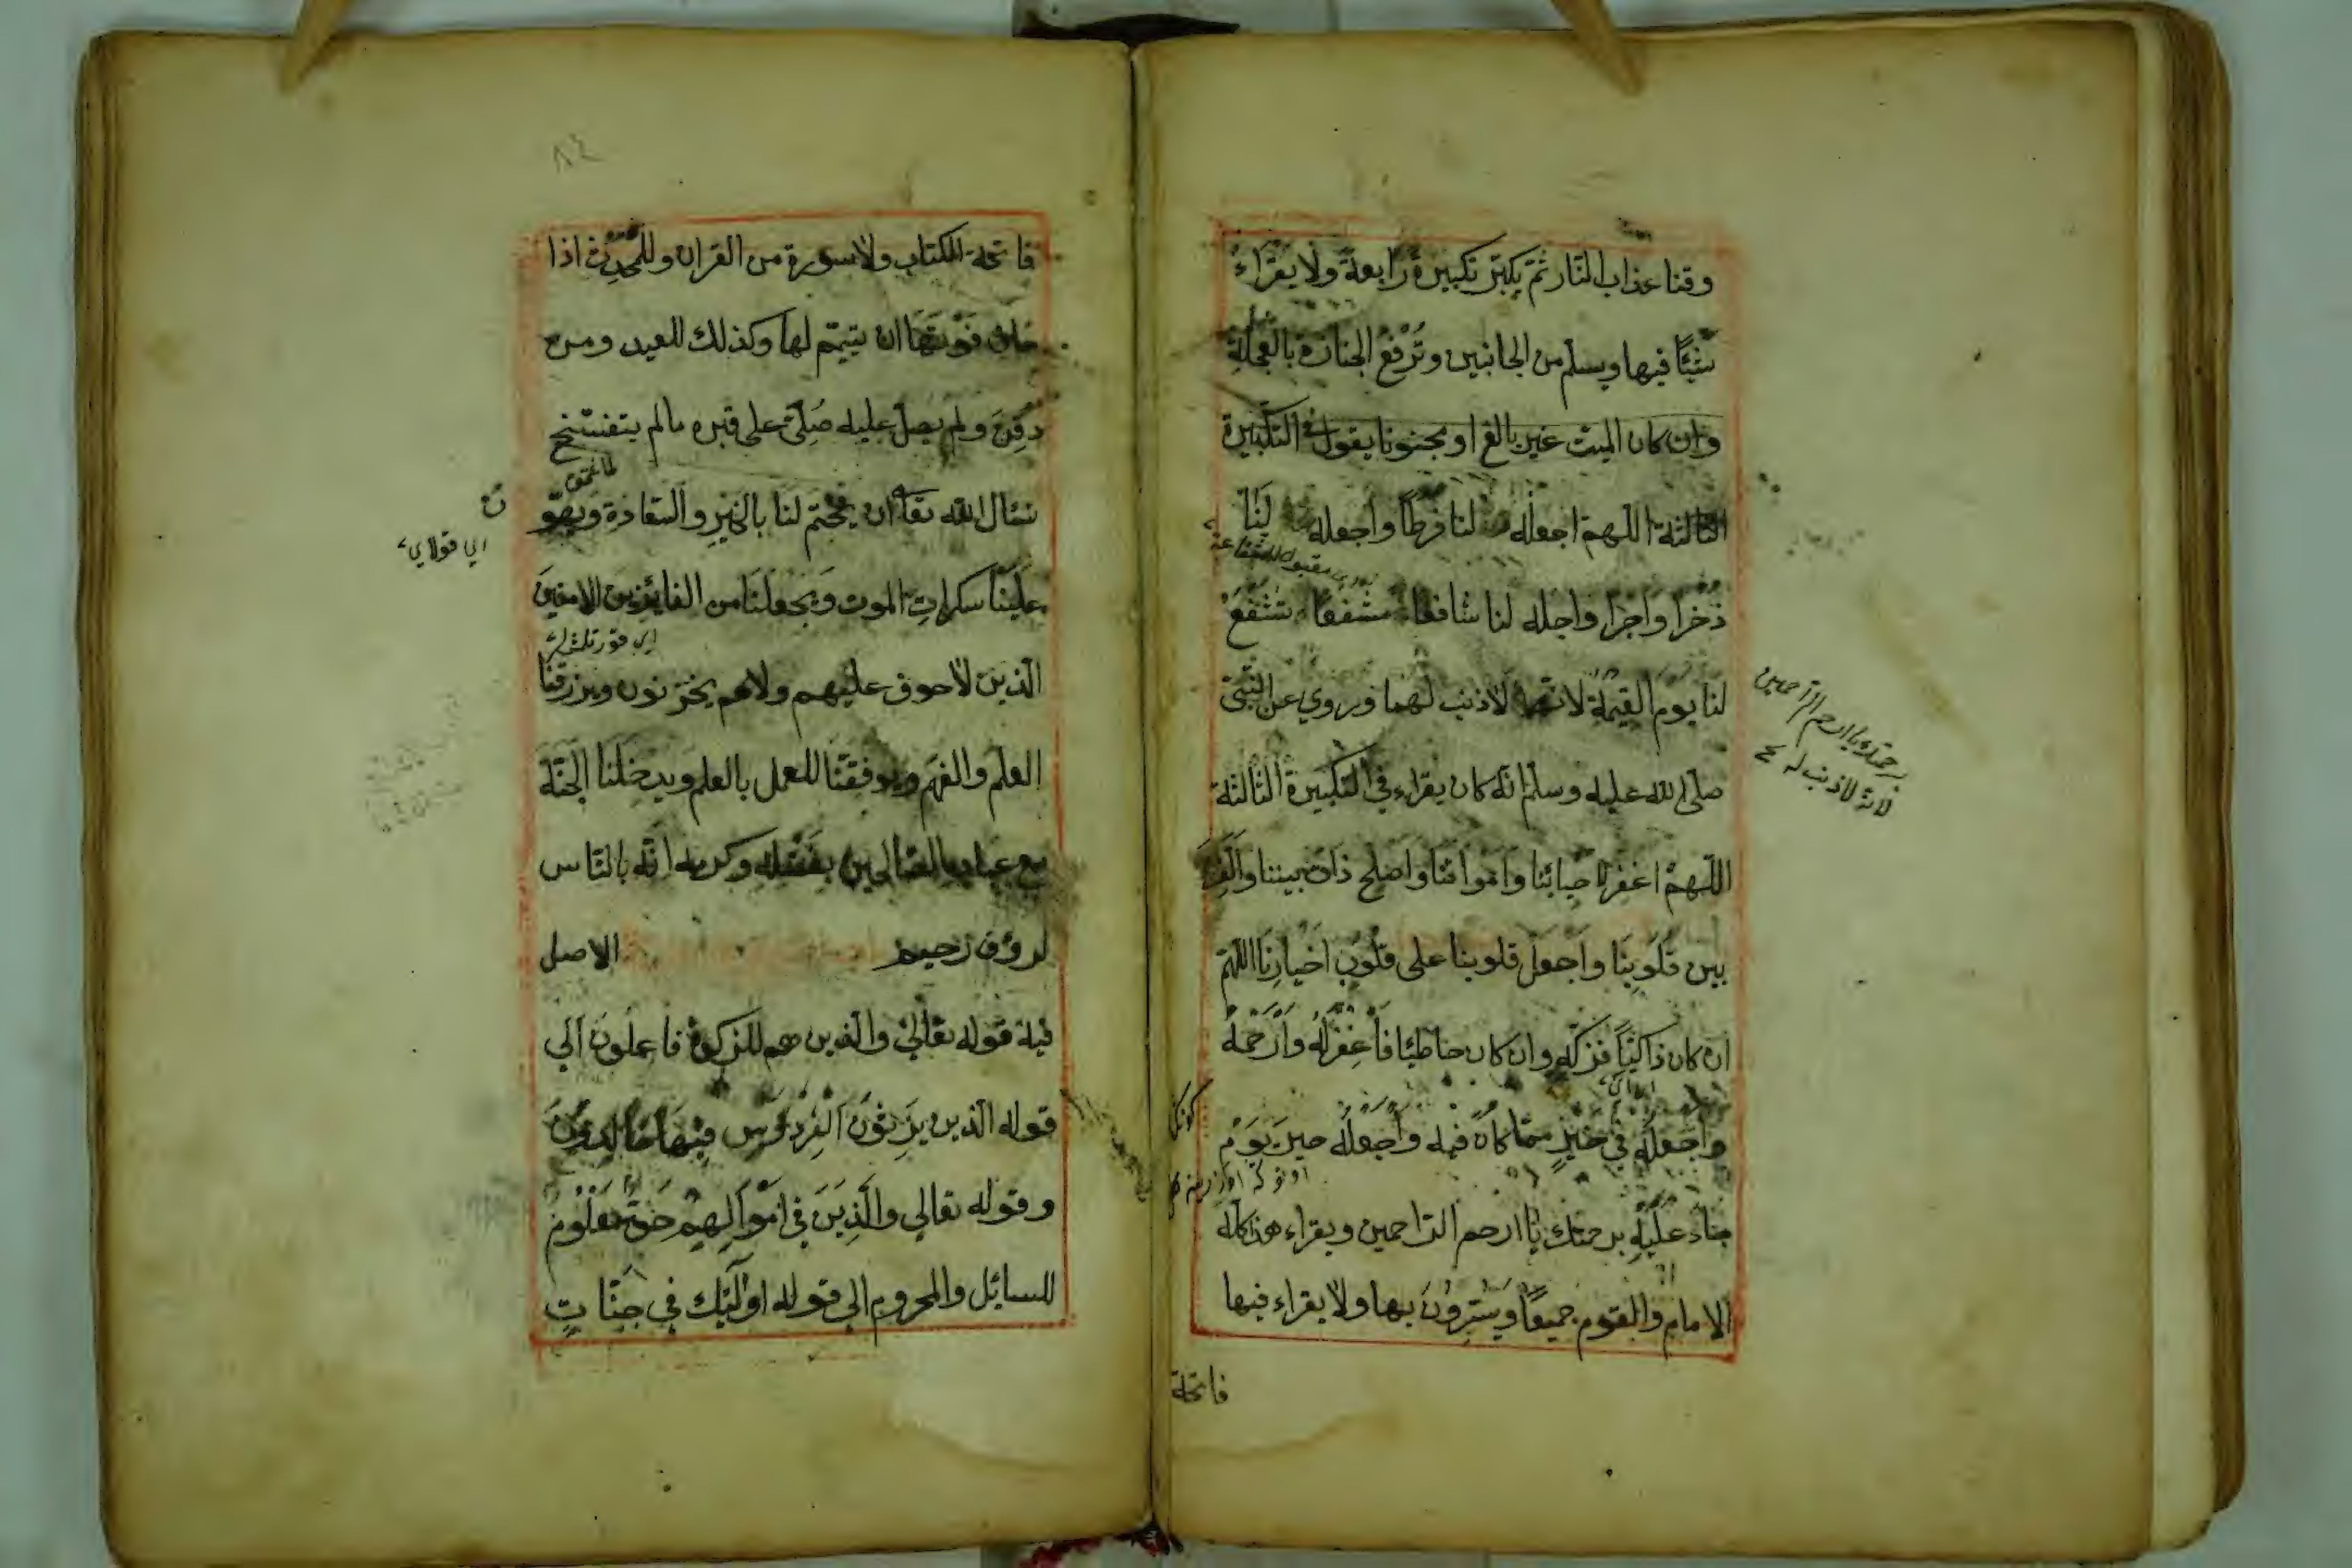 وقنا عذاب النار ثم يكبر تكبيرة رابعة ولا يقراء
شيئا فيها ويسلم من الجانبين وترفع الجنازة بالعجلة
وان كان الميت غير بالغ او مجنونا يقول في التكبيرة
الثالثة اللهم اجعله لنا فرطا واجعله لنا
ذخرا واجرا واجله لنا شافعا مشفعا تشفع
لنا يوم القيمة لانهما لاذنب لهما وروي عن النبي
صلى الله عليه وسلم انه كان يقراء في التكبيرة الثالثة
اللهم اغفر لاحيائنا وامواتنا واصلح ذات بيننا والف
بين قلوبنا واجعل قلوبنا على قلوب اخيارنا اللهم
ان كان ذاكيا فزكه وان كان خاطئا فاغفر له وارحمه
واجعله في خير مما كان فيه واجعله حين يوم
جاء عليه برحمتك يا ارحم الراحمين ويقراء هذا كله
الامام والقوم جميعا ويسرون بها ولا يقراء فيها
فاتحة
برحمتك يا ارحم الراحمين
لانه لاذنب له
٨٤
فاتحة الكتاب ولا سورة من القران وللمحدث اذا
خاف فوتها ان يتيمم لها وكذلك للعيد ومن
دفن ولم يصل عليه صلى على قبره مالم يتفسخ
نسال الله تعا ان يختم لنا بالخير والسعادة ويهو
ن
علينا سكرات الموت ويجعلنا من الفائزين الامنين
الذين لاخوف عليهم ولاهم يحزنون ويرزقنا
العلم والفهم ويوفقنا للعمل بالعلم ويدخلنا الجنة
مع عباده الصالحين بفضله وكرمه انه بالناس
لرؤف رحيم الاصل
فيه قوله تعالي والذين هم للزكوة فاعلون الي
قوله الذين يرثون الفردوس فيها خالدون
وقوله تعالي والذين في اموالهم حق معلوم
للسايل والمحروم الي قوله اولئك في جنات